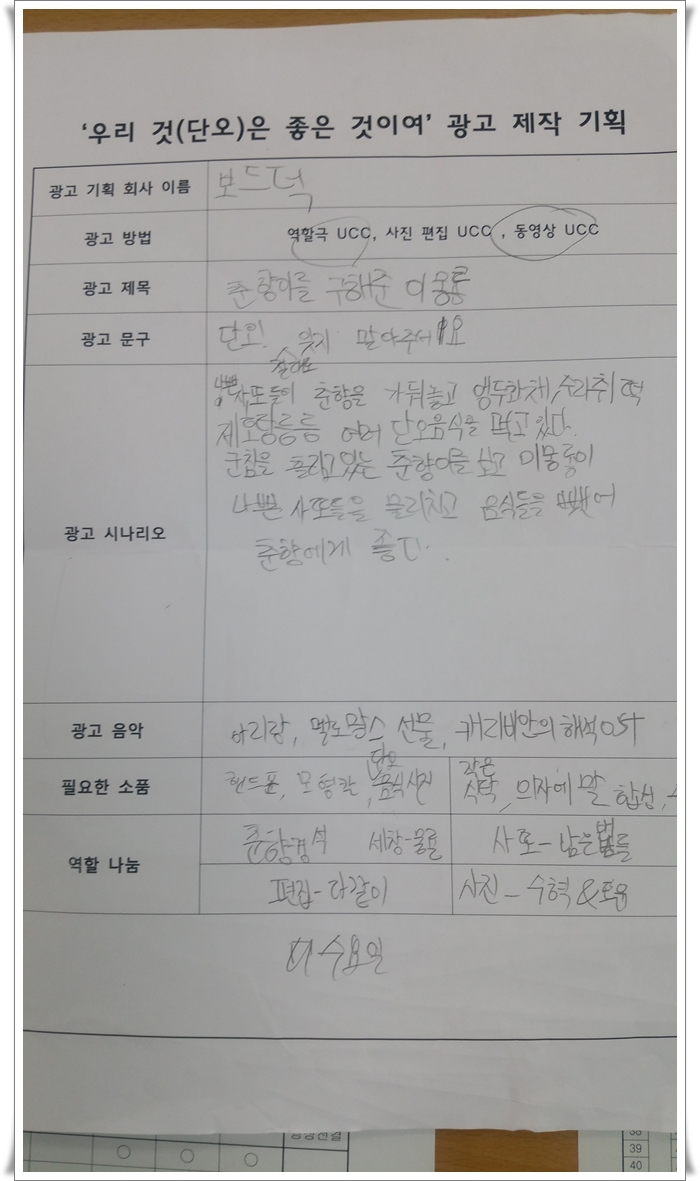 ‘우리 것(단오)은 좋은 것이여’ 광고 제작 기획
광고 기획 회사 이름 보드덕
광고 방법 역할극 UCC, 사진 편집 UCC , 동영상 UCC
광고 제목 춘향이를 구해준 이몽룡
광고 문구 단오! 잊지 말아주세요
광고 시나리오
나쁜 사또들이 춘향을 가둬놓고 앵두화채, 수리취 떡
제호탕등등 여러 단오음식을 먹고 있다.
군침을 흘리고 있는 춘향이를 보고 이몽룡이
나쁜 사또들을 물리치고 음식들을 뺏어
춘향에게 준다.
광고 음악 아리랑, 멜로망스 선물, 캐리비안의 해적OST
필요한 소품 핸드폰, 모형칼, 단오 음식사진 작은 식탁, 의자에 말 합성,
역할 나눔 춘향-경석 세창-몽룡 사또- 남은
편집-다같이 사진 - 수혁 &
수요일
38
39
40